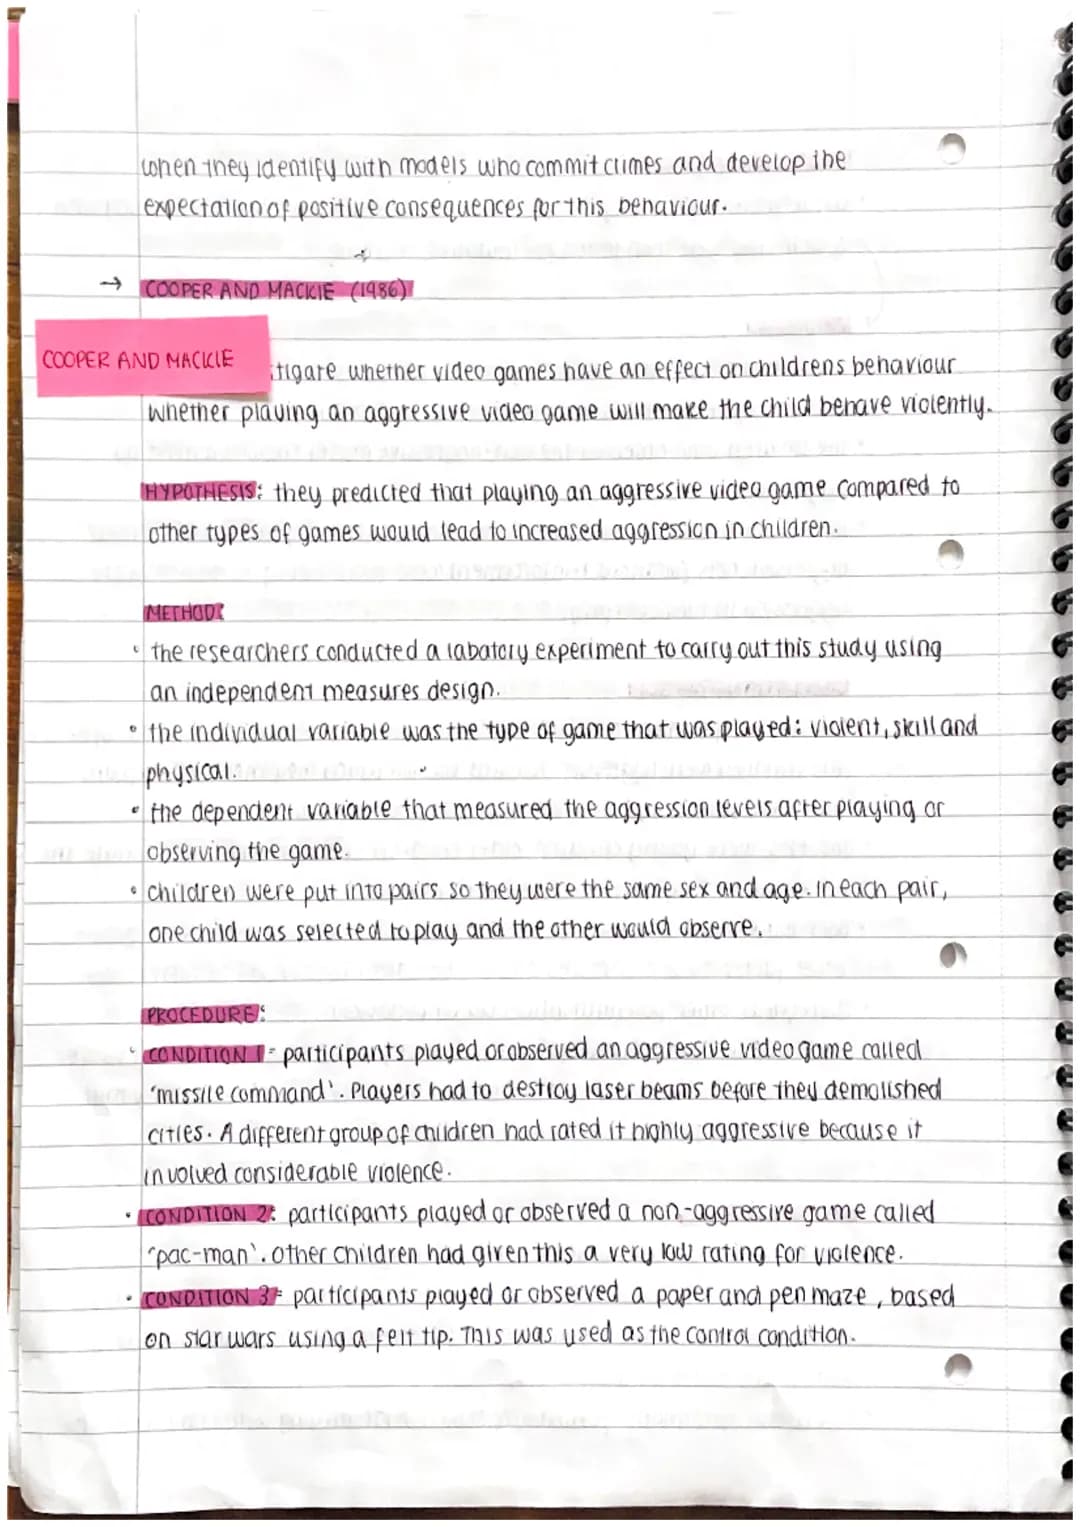 when they identify with models who commit crimes and develop the
expectation of positive consequences for this behaviour.
→ COOPER AND MACKIE (1986)
COOPER AND MACKIE
tigate whether video games have an effect on childrens behaviour
whether playing an aggressive video game will make the child behave violently.
HYPOTHESIS: they predicted that playing an aggressive video game compared to
other types of games would lead to increased aggression in children.
METHOD:
• the researchers conducted a labatory experiment to carry out this study using
an independent measures design.
• the individual variable was the type of game that was played: violent, skill and
physical.
• the dependent variable that measured the aggression levels after playing or
observing the game.
• children were put into pairs so they were the same sex and age. in each pair,
one child was selected to play and the other would observe.
PROCEDURE:
• CONDITION 1= participants played or observed an aggressive video game called
'missile command'. Players had to destroy laser beams before they demolished
cities. A different group of children had rated it highly aggressive because it
involved considerable violence.
• CONDITION 2: participants played or observed a non-aggressive game called
'pac-man'. other children had given this a very low rating for violence.
• CONDITION 3= participants played or observed a paper and pen maze, based
on star wars using a felt tip. This was used as the control condition.